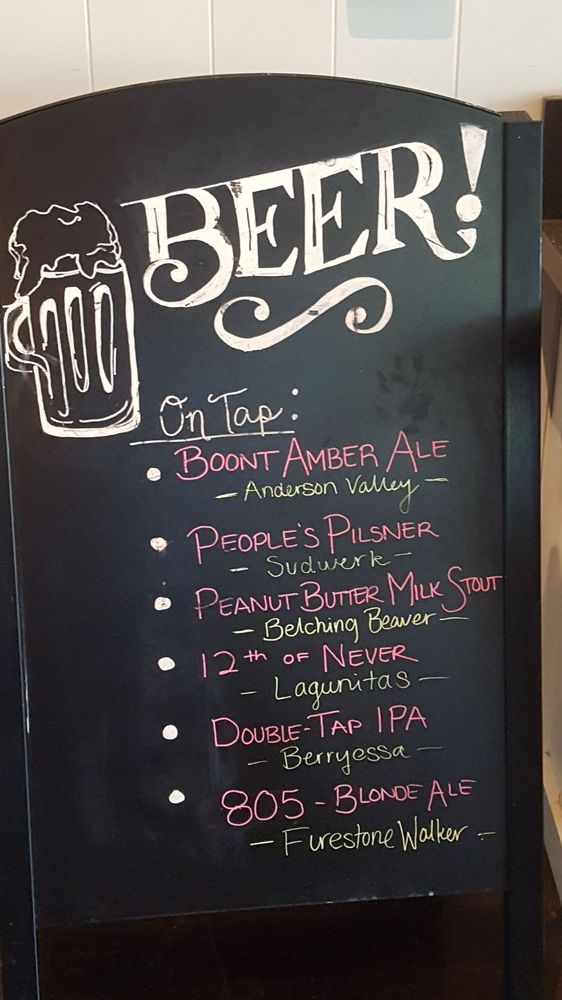 BEER!
On Tap:
BOONT AMBER ALE
- Anderson Valley -
PEOPLE'S PILSNER
- Sudwerk -
PEANUT BUTTER MILK STOUT
- Belching Beaver -
12th OF NEVER
- Lagunitas -
DOUBLE-TAP IPA
- Berryessa -
805 - BLONDE ALE
- Furestone Walker -